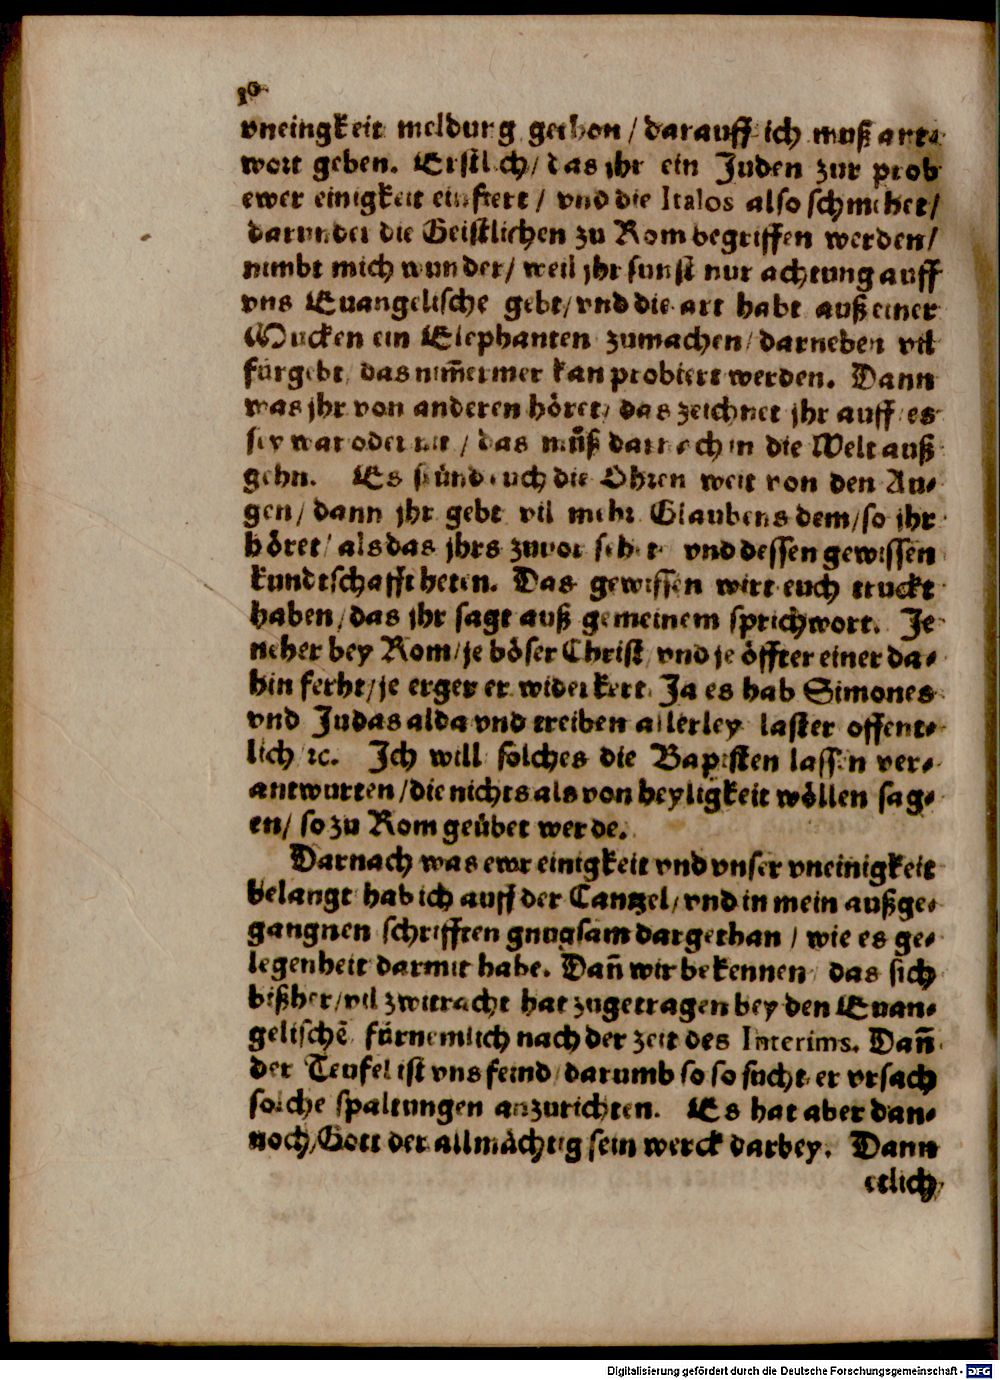 vneingkeit meldung gethon / darauff ich muß ant⸗
wort geben. Erstlich / das jhr ein Juden zur prob
ewer einigkeit einfiert / vnd die Italos also schmehet /
darunder die Geistlichen zu Rom begriffen werden /
nimbt mich wunder / weil jhr sunst nur achtung auff
vns Euangelische gebt / vnd die art habt auß einer
Mucken ein Elephanten zumachen / darneben vil
fürgebt / das nim̃ermer kan probiert werden. Dann
was jhr von anderen höret / das zeichnet jhr auff es
sey war oder nit / das müß dannoch in die Welt auß
gehn. Es sünd euch die Ohren weit von den Au⸗
gen / dann jhr gebt vil mehr Glaubens dem / so jhr
höret / als das jhrs zuvor sehet vnd dessen gewissen
kundtschafft heten. Das gewissen wirt euch truckt
haben / das jhr sagt auß gemeinem sprichwort. Je
neher bey Rom / je böser Christ / vnd je öffter einer da⸗
hin ferht / je erger er widerkert. Ja es hab Simones
vnd Judas alda vnd treiben allerley laster offent⸗
lich ꝛc. Ich will solches die Bapisten lassen ver⸗
antwurten / die nichts als von heyligkeit wöllen sag⸗
en / so zu Rom geübet werde.
Darnach was ewr einigkeit vnd vnser vneinigkeit
belangt hab ich auff der Cantzel / vnd in mein außge⸗
gangnen schrifften gnugsam dargethan / wie es ge⸗
legenheit darmit habe. Dan̄ wir bekennen / das sich
bißher / vil zwitracht hat zugetragen bey den Euan⸗
gelischē fürnemlich nach der zeit des Interims. Dan̄
der Teufel ist vns feind / darumb so so sucht er vrsach
solche spaltungen anzurichten. Es hat aber dan⸗
noch / Gott der allmächtig sein werck darbey. Dann
etlich
Digitalisierung gefördert durch die Deutsche Forschungsgemeinschaft - DFG